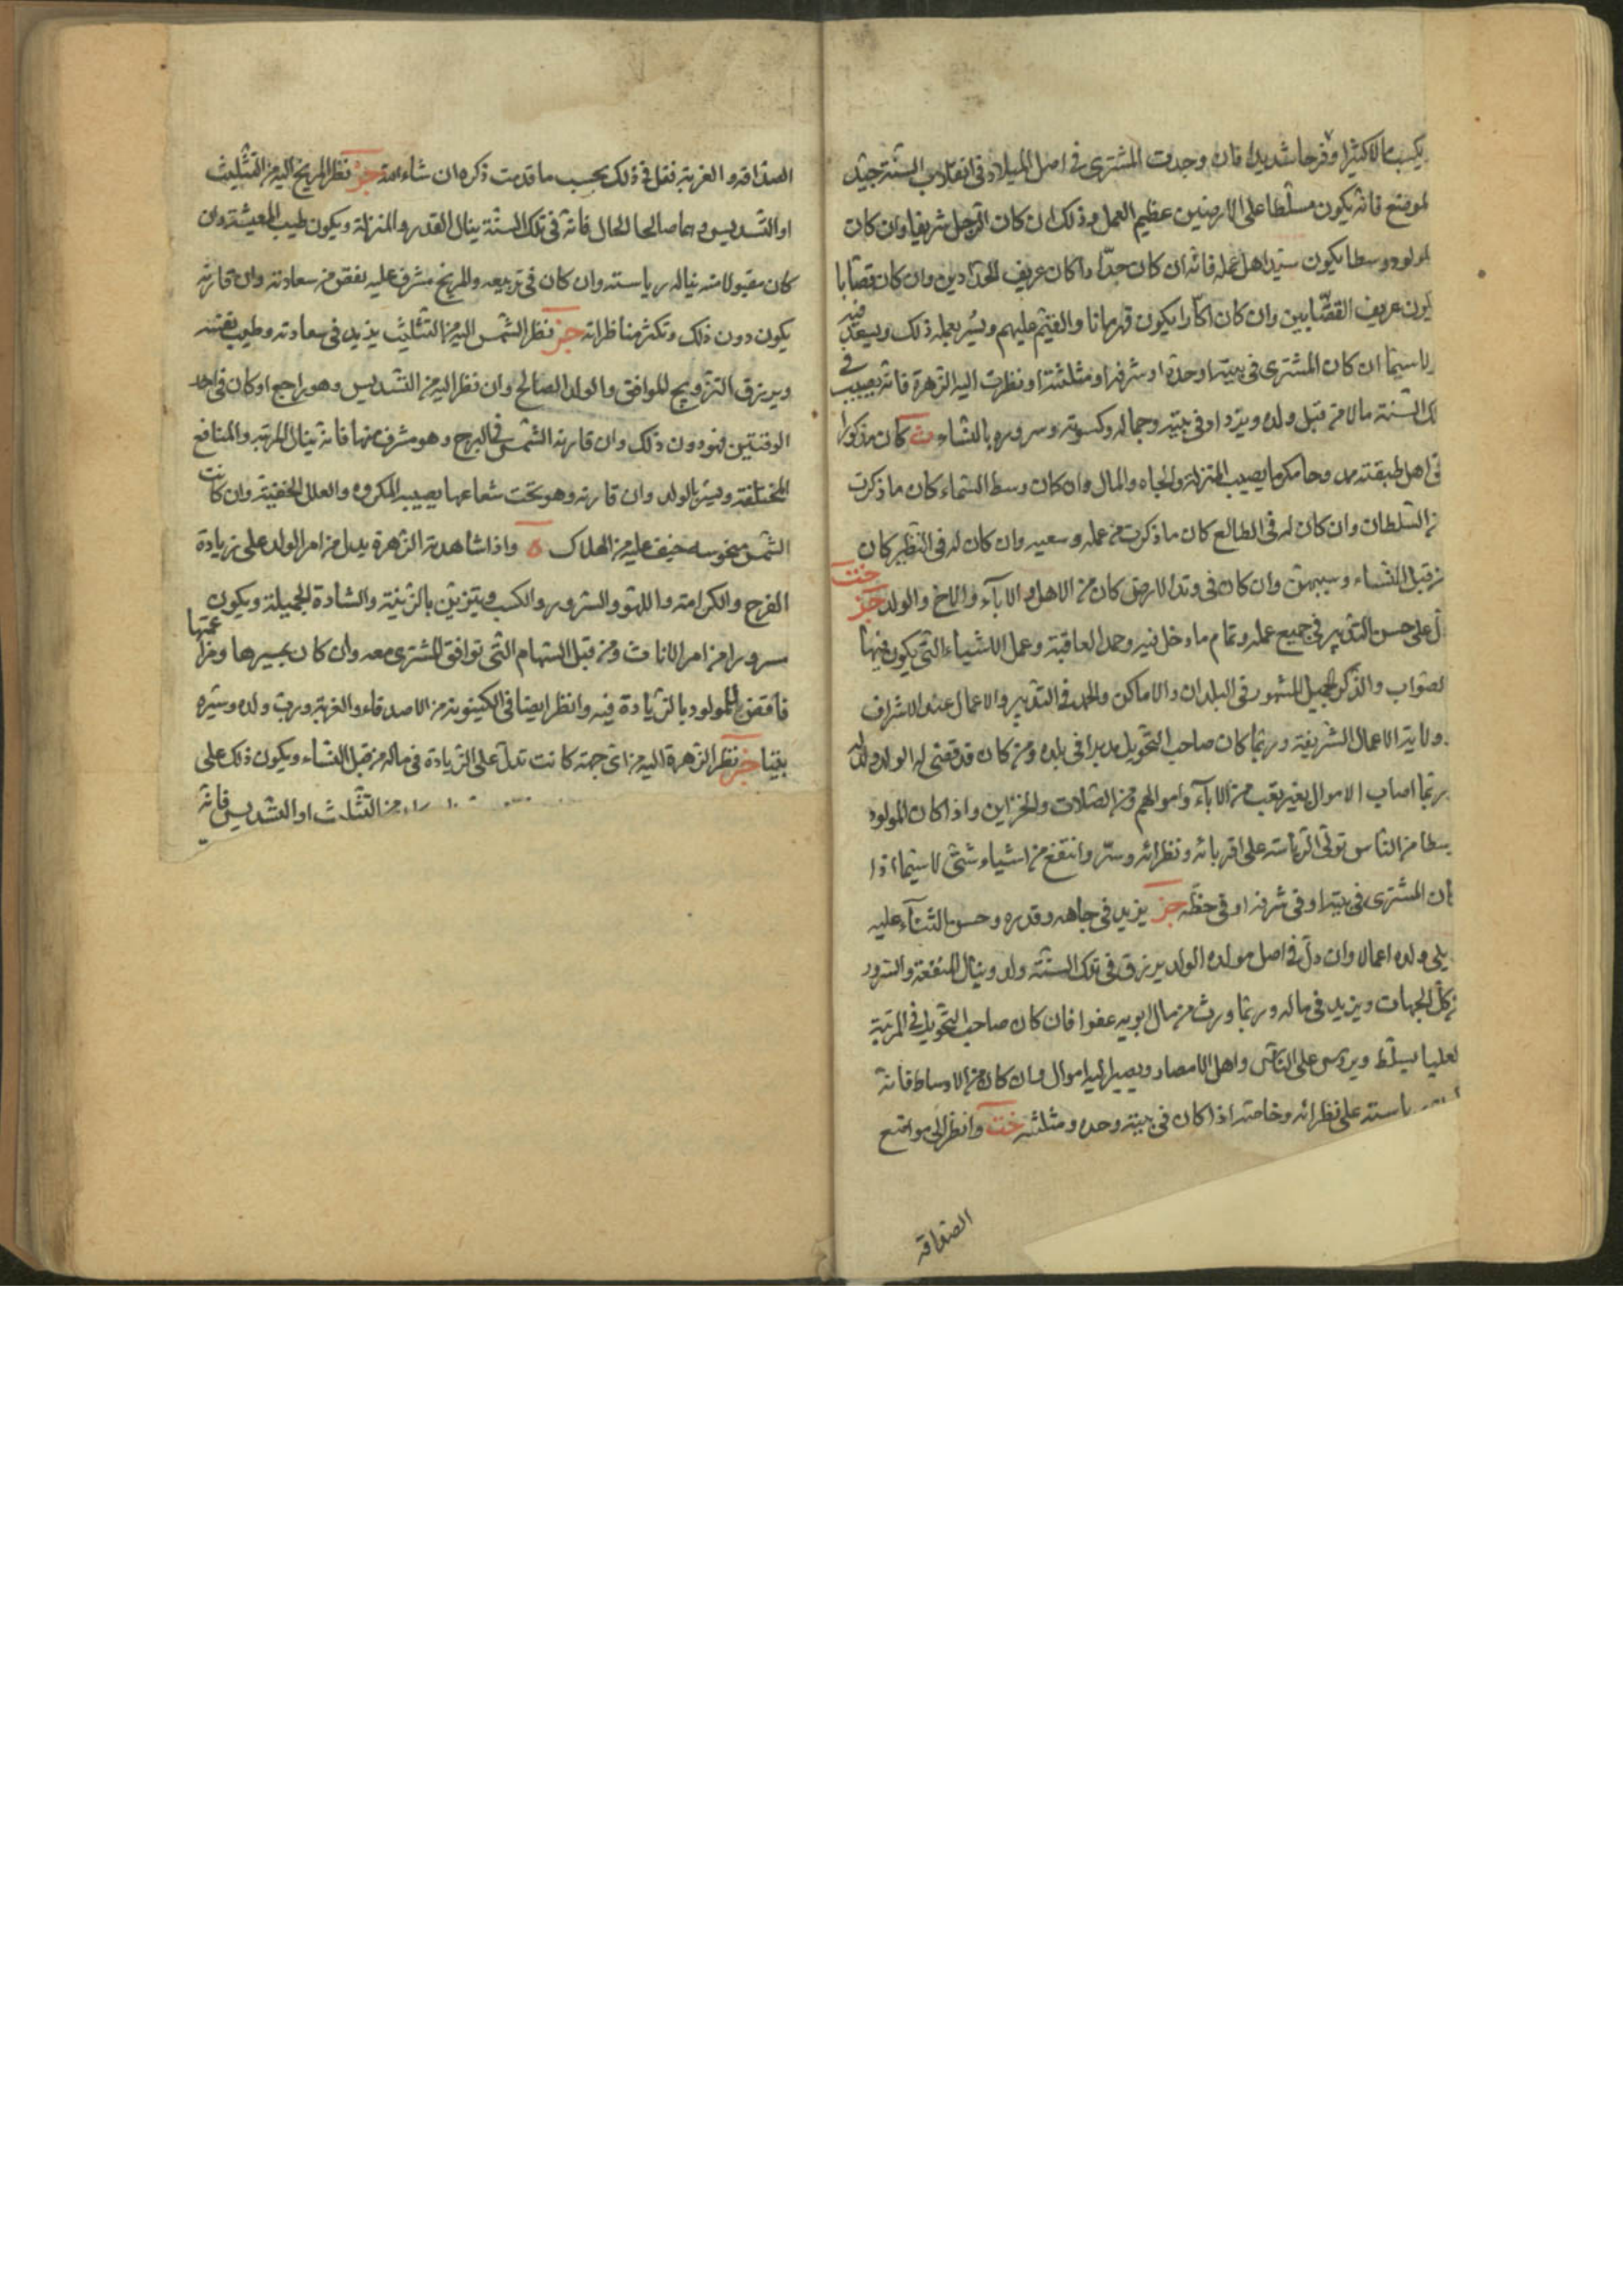 يكسب مالا كثيرا وفرحا شديدا فان وجدت المشترى فى اصل الميلاد فى انقلاب السنة جيد
لموضع فانه يكون مسلطا على الارضين عظيم العمل وذلك ان كان الرجل شريفا وان كان
لمولود وسطا يكون سيد اهل عمله فانه ان كان حدّادا كان عريف الحدّادين وان كان قصّابا
يكون عريف القصّابين وان كان اكّارا يكون قهرمانا والقيّم عليهم ويسر بعمله ذلك ويسعد فيه
لاسيما ان كان المشترى فى بيته او حدّه او شرفه او مثلثته او نظرت اليه الزهرة فانه يصيب فى
لك السنة مالا من قبل ولده ويزداد فى بيته وجماله وكسوته وسروره بالنساء ث كان مذكورا
فى اهل طبقته ممدوحا مكرما يصيب المنزلة والجاه والمال وان كان وسط السماء كان ما ذكرت
من السلطان وان كان له فى الطالع كان ما ذكرت من عمله وسعيه وان كان له فى النظير كان
من قبل النساء وسببهن وان كان فى وتد الارض كان من الاهل والآباء والاخ والولد خت جز
دل على حسن التدبير فى جميع عمله وتمام ما دخل فيه وحمد العاقبة وعمل الاشياء التى يكون فيها
لصواب والذكر الجميل المشهور فى البلدان والاماكن والحمد فى التدبير والاعمال عند الاشراف
وولاية الاعمال الشريفة وربما كان صاحب التحويل مدبرا فى بلده ومن كان قد قضى له الولد ولد له
ربما اصاب الاموال بغير تعب من الآباء واموالهم ومن الصلات والخزاين واذا كان المولود
وسطا من الناس تولى الرئاسة على اقربائه ونظرائه وسر وانتفع من اشياء شتى لاسيما اذا
كان المشترى فى بيته او فى شرفه او فى حظه جز يزيد فى جاهه وقدره وحسن الثناء عليه
يلى ولده اعمالا وان دل فى اصل مولده الولد يرزق فى تلك السنة ولد وينال المنفعة والسرور
من كل الجهات ويزيد فى ماله وربما ورث من مال ابويه عفوا فان كان صاحب التحويل فى المرتبة
لعليا يسلط ويروس على الناس واهل الامصار ويصير اليه اموال وان كان من الاوساط فانه
رياسته على نظرائه وخاصة اذا كان فى بيته وحده ومثلثته خت وانظر الى مواضع
الصداقة
الصداقة والغربة فقل فى ذلك بحسب ما قدمت ذكره ان شاء الله جز نظر المريخ اليه من التثليث
او التسديس وهما صالحا الحال فانه فى تلك السنة ينال القدر والمنزلة ويكون طيب المعيشة وان
كان مقبولا منه يناله رياسته وان كان فى تربيعه والمريخ مشرف عليه نقص من سعادته وان قارنه
يكون دون ذلك وتكثر مناظراته جز نظر الشمس اليه من التثليث يزيد فى سعادته وطيب نفسه
ويرزق التزويج الموافق والولد الصالح وان نظر اليه من التسديس وهو راجع او كان فى احد
الوقتين فهو دون ذلك وان قارنه الشمس فى البرج وهو مشرف منها فانه ينال المرتبة والمنافع
المختلفة ويسر بالولد وان قارنه وهو تحت شعاعها يصيبه المكروه والعلل الخفية وان كانت
الشمس منحوسة خيف عليه من الهلاك ه واذا شاهدته الزهرة يدل من امر الولد على زيادة
الفرح والكرامة واللهو والسرور والكسب ويتزين بالزينة والشارة الجميلة ويكون عمتها
سرورا من امر الاناث ومن قبل السهام التى توافق المشترى معه وان كان بمسيرها ومزا
فاقض للمولود بالزيادة فيه وانظر ايضا فى الكينونة من الاصدقاء والغربة ورب ولده وسيره
يقينا جز نظر الزهرة اليه من اى جهة كانت تدل على الزيادة فى ماله من قبل النساء ويكون ذلك على
من التثليث او التسديس فانه